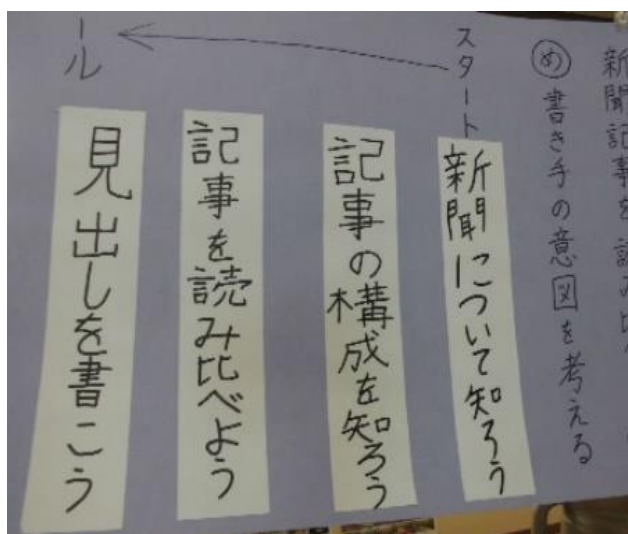 新聞記事を読み比
め 書き手の意図を考える
スタート
新聞について知ろう
記事の構成を知ろう
記事を読み比べよう
見出しを書こう
ール